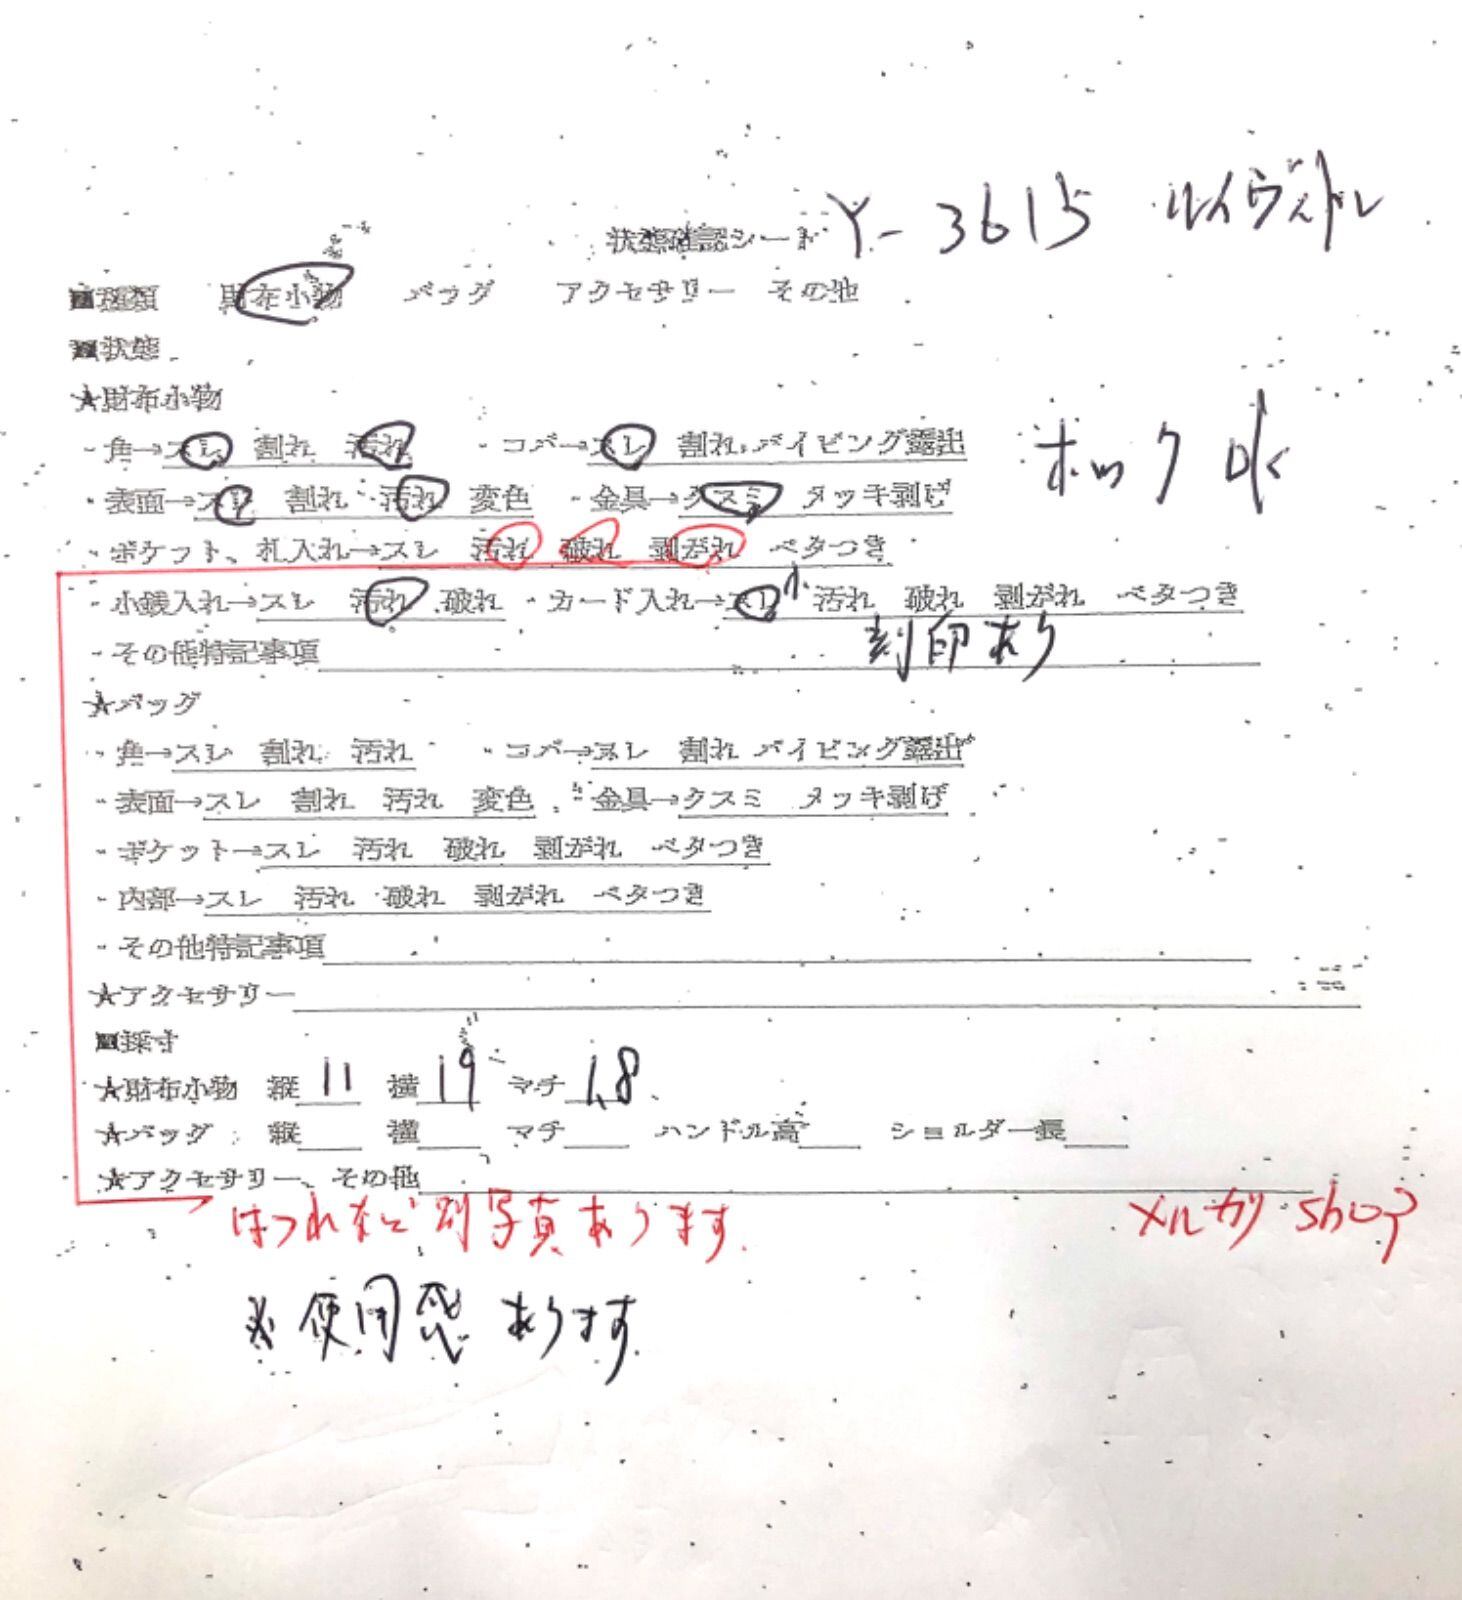 状態確認シート Y-3615 ルイヴィトン
■種類 財布小物 バッグ アクセサリー その他
■状態
★財布小物
・角→スレ 割れ 汚れ ・コバ→スレ 割れ パイピング露出
ホック OK
・表面→スレ 割れ 汚れ 変色 ・金具→クスミ メッキ剥げ
・ポケット、札入れ→スレ 汚れ 破れ 剥がれ ベタつき
・小銭入れ→スレ 汚れ 破れ ・カード入れ→スレ 小 汚れ 破れ 剥がれ ベタつき
・その他特記事項 刻印あり
★バッグ
・角→スレ 割れ 汚れ ・コバ→スレ 割れ パイピング露出
・表面→スレ 割れ 汚れ 変色 ・金具→クスミ メッキ剥げ
・ポケット→スレ 汚れ 破れ 剥がれ ベタつき
・内部→スレ 汚れ 破れ 剥がれ ベタつき
・その他特記事項
★アクセサリー
■採寸
★財布小物 縦 11 横 19 マチ 1.8
★バッグ 縦 横 マチ ハンドル高 ショルダー長
★アクセサリー、その他
ほつれなど 別写真あります. メルカリ shop
※使用感あります